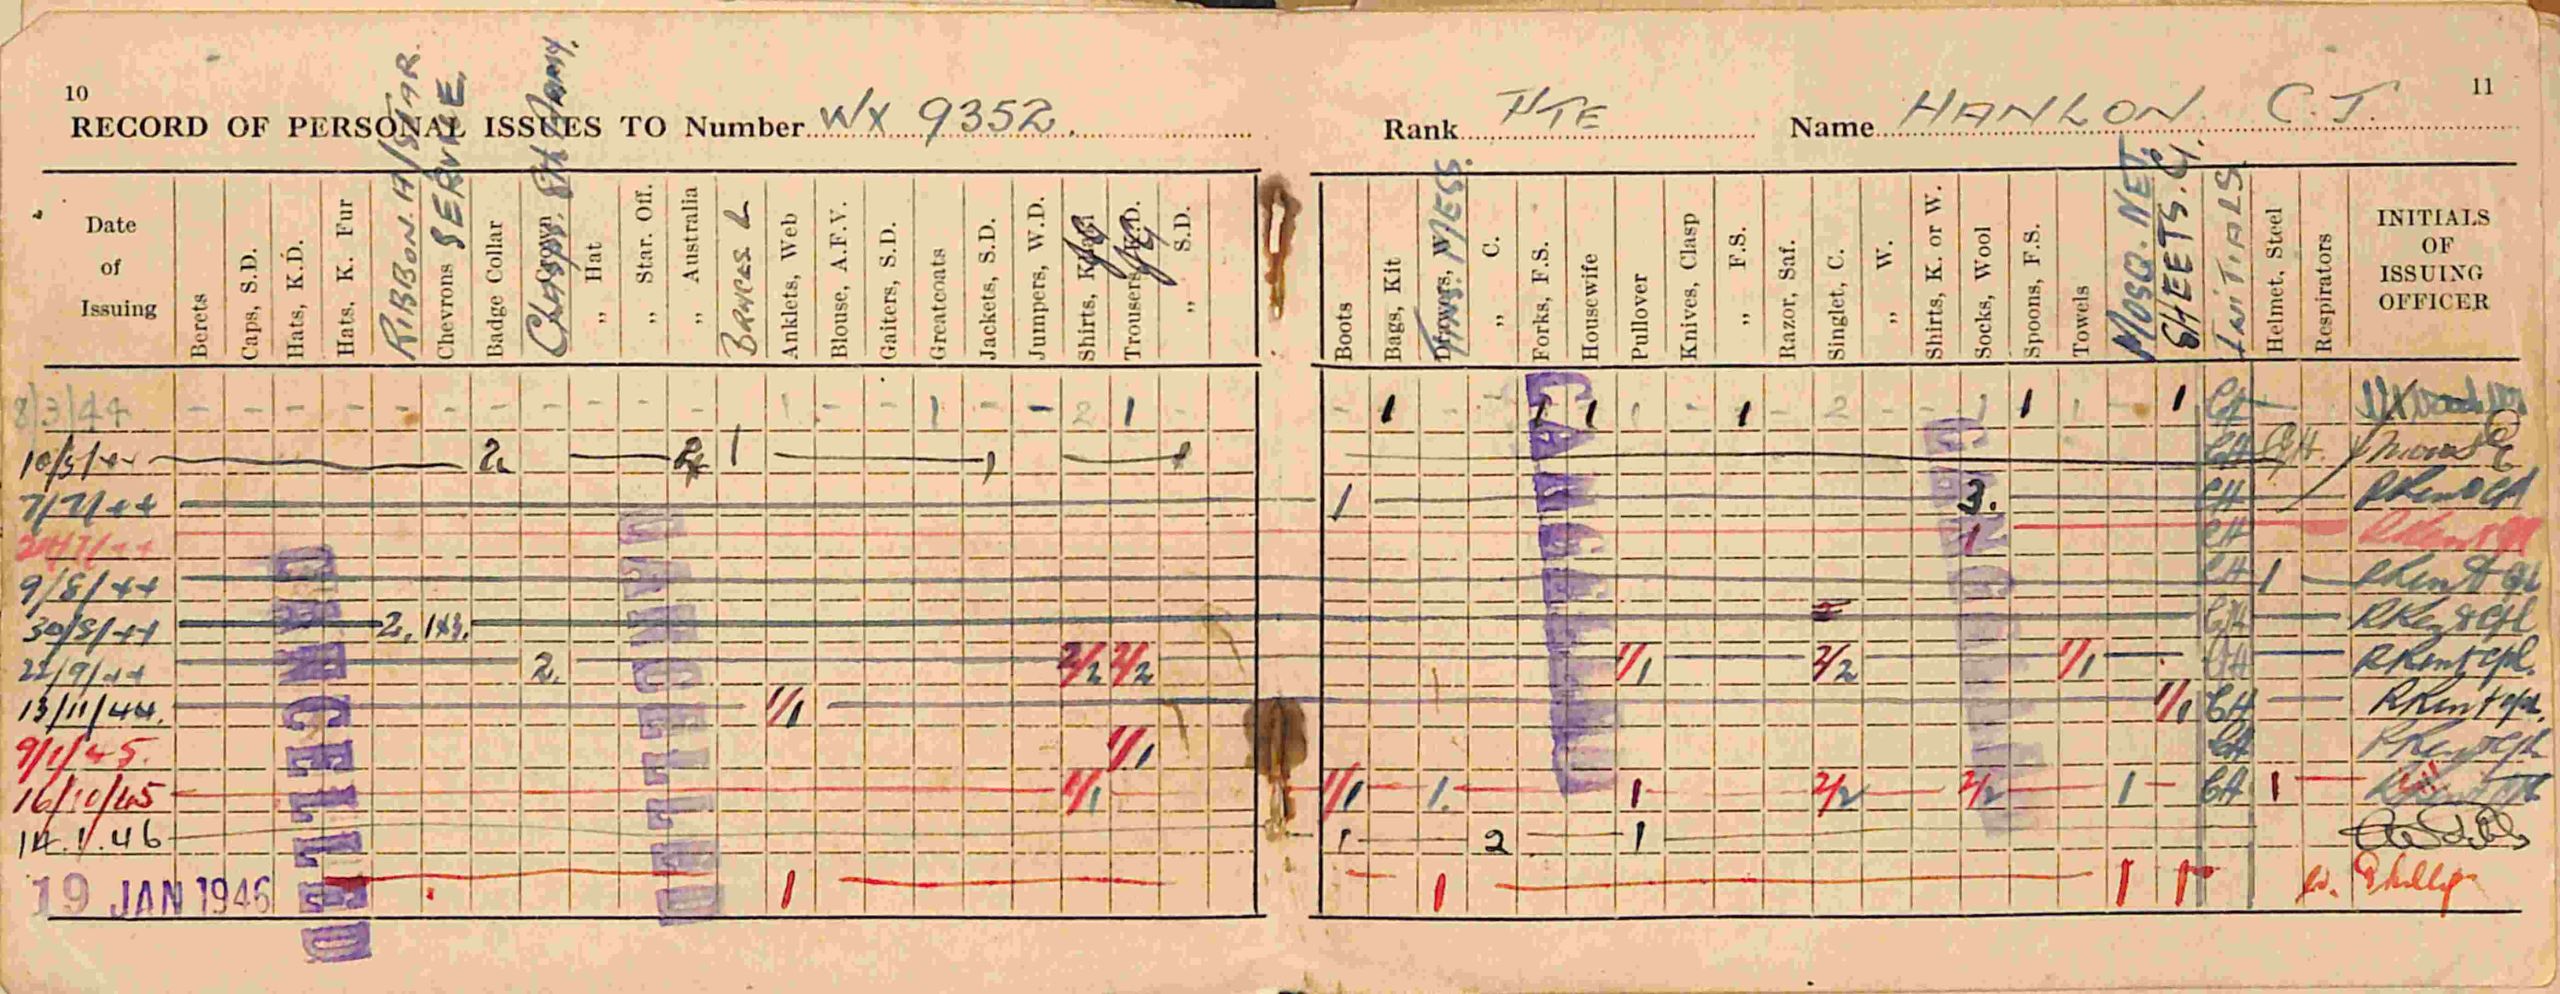 10
RECORD OF PERSONAL ISSUES TO Number WX 9352.
Rank PTE Name HANLON C.J.
11
Date of Issuing
Berets
Caps, S.D.
Hats, K.D.
Hats. K. Fur
RIBBON. A/STAR.
Chevrons SERVICE.
Badge Collar
Crown
CLASPS. 8th ARMY.
„ Hat
„ Star. Off.
„ Australia
BRACES 2
Anklets, Web
Blouse, A.F.V.
Gaiters, S.D.
Greatcoats
Jackets, S.D.
Jumpers, W.D.
Shirts, JG
Trousers, K.D. JG
„ S.D.
Boots
Bags, Kit
Drawers, W. MESS.
„ C.
Forks, F.S.
Housewife
Pullover
Knives, Clasp
„ F.S.
Razor, Saf.
Singlet, C.
„ W.
Shirts, K. or W.
Socks, Wool
Spoons, F.S.
Towels
MOSQ. NET.
SHEETS. G.
INITIALS
Helmet, Steel
Respirators
INITIALS OF ISSUING OFFICER
8/3/44 - - - - - - - - - - - - - - - 1 - - 2 1 - - 1 - - 1 - - 1 - 2 - - 1 1 - 1 CH
10/5/44 2 2 1 1 1 CH CH
7/7/44 1 3. CH R Kent Cpl
1 CH R Kent Cpl
9/8/44 CH 1 R Kent Cpl
30/8/44 2. 1x3. CH R Kent Cpl
22/9/44 2. 2/2 2/2 1/1 2/2 1/1 CH R Kent Cpl.
13/11/44. 1/1 1/1 CH R Kent Cpl.
9/1/45. 1/1 CH R Kent Cpl
16/10/45 1/1 1/1 1. 1 2/2 2/2 1 CH 1
14.1.46 1 2 1
19 JAN 1946 1 1 1 1
CANCELLED
CANCELLED
CANCELLED
CANCELLED